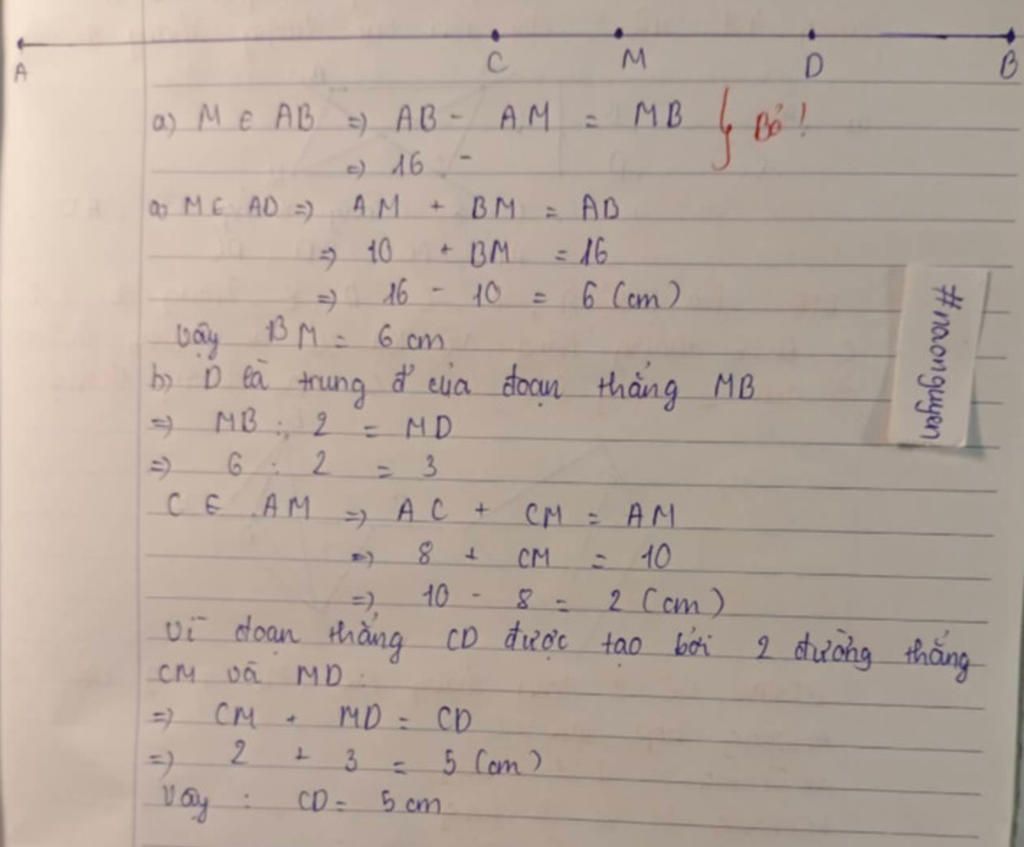 A C M D B
a) M ∈ AB => AB - AM = MB } Bỏ!
=> 16 -
a) M ∈ AB => AM + BM = AB
=> 10 + BM = 16
=> 16 - 10 = 6 (cm)
Vậy BM = 6 cm
b) D là trung đ' của đoạn thẳng MB
=> MB : 2 = MD
=> 6 : 2 = 3
C ∈ AM => AC + CM = AM
=> 8 + CM = 10
=> 10 - 8 = 2 (cm)
Vì đoạn thẳng CD được tạo bởi 2 đường thẳng
CM và MD:
=> CM + MD = CD
=> 2 + 3 = 5 (cm)
Vậy : CD = 5 cm
#naonguyen